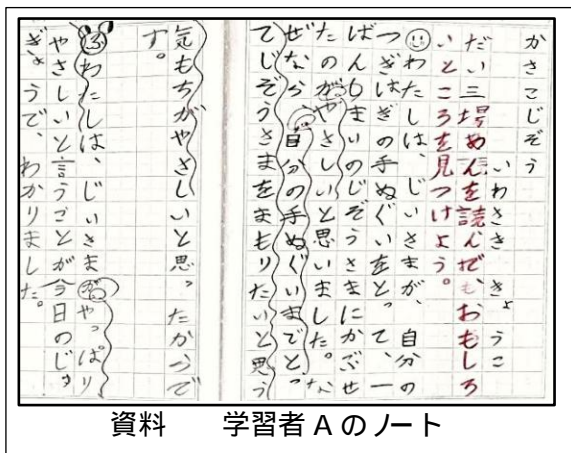 かさこじぞう
いわさき きょうこ
だい三場めんを読んで、おもしろ
いところを見つけよう。
わたしは、じいさまが、自分の
つぎはぎの手ぬぐいをとって、一
ばんしまいのじぞうさまにかぶせ
たのがやさしいと思いました。な
ぜなら自分の手ぬぐいまでとっ
てじぞうさまをまもりたいと思う
気もちがやさしいと思ったからで
す。
ふ わたしは、じいさまがやっぱり
やさしいと言うことが今日のじゅ
ぎょうで、わかりました。
資料 学習者Aのノート